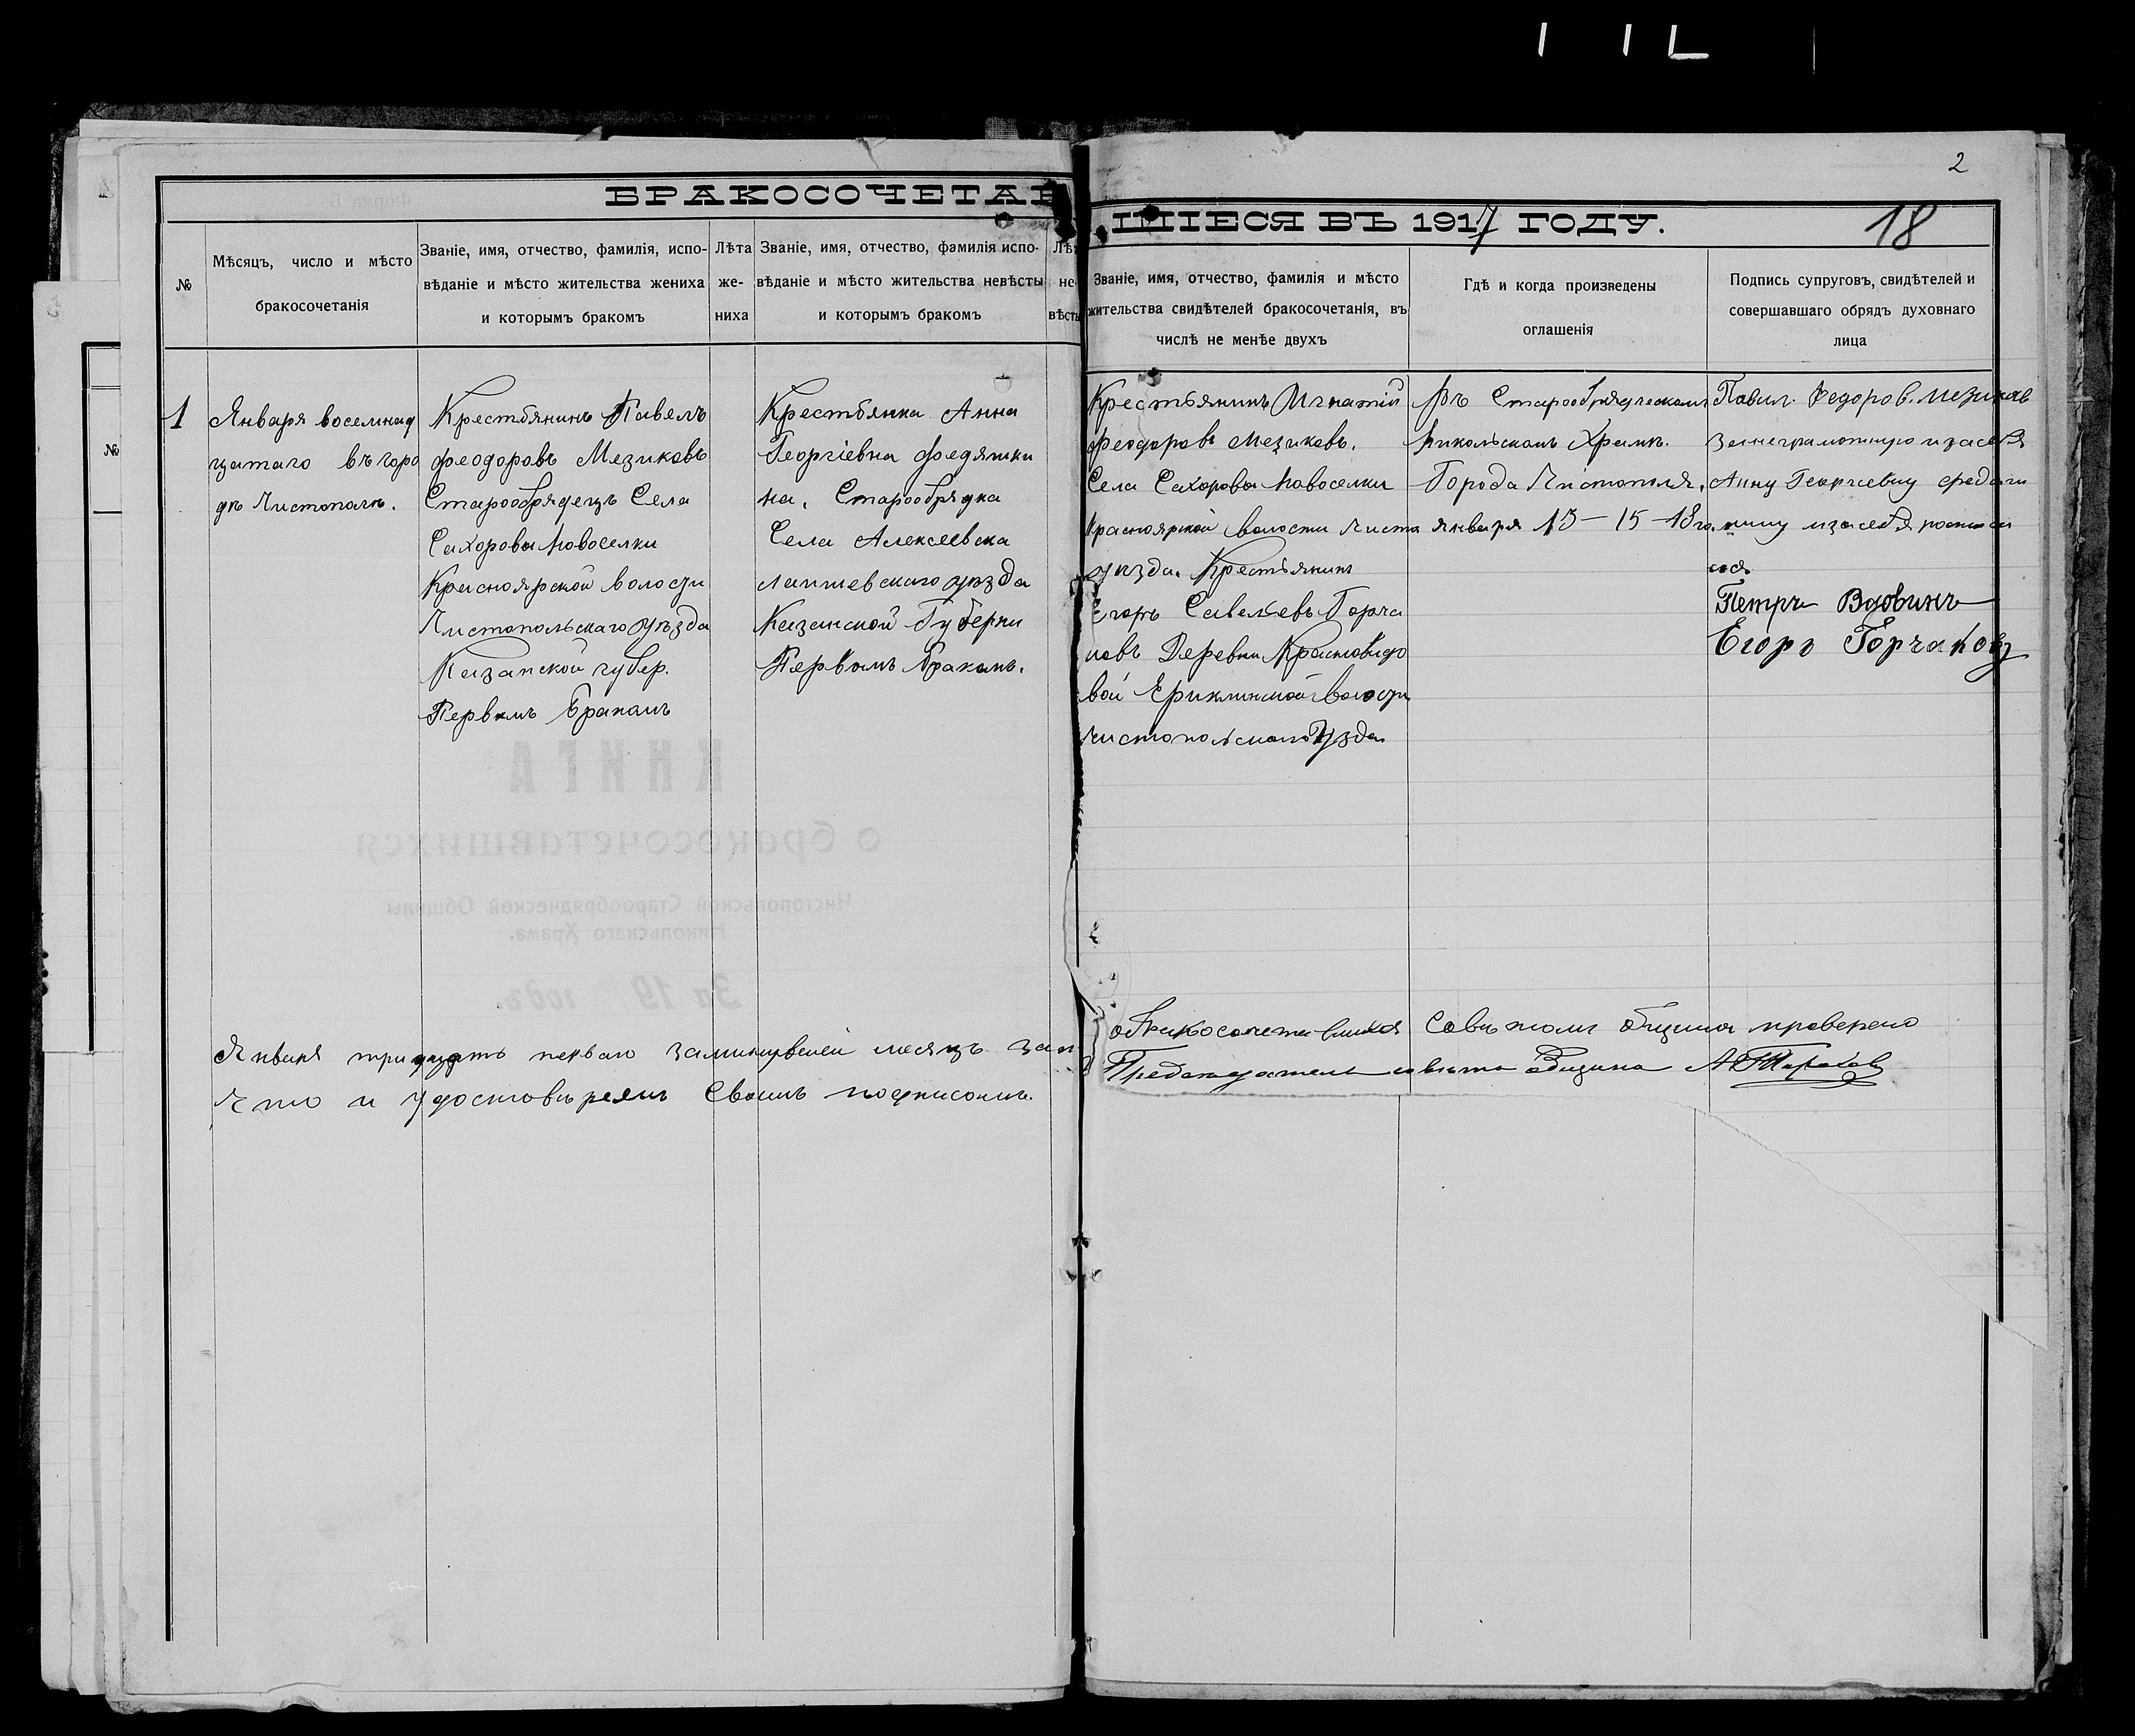 2
БРАКОСОЧЕТАВ
ШІЕСЯ ВЪ 1917 ГОДУ.
18
№
Мѣсяцъ, число и мѣсто
бракосочетанія
Званіе, имя, отчество, фамилія, испо-
вѣданіе и мѣсто жительства жениха
и которымъ бракомъ
Лѣта
же-
ниха
Званіе, имя, отчество, фамилія испо-
вѣданіе и мѣсто жительства невѣсты
и которымъ бракомъ
Лѣт
не-
вѣсты
Званіе, имя, отчество, фамилія и мѣсто
жительства свидѣтелей бракосочетанія, въ
числѣ не менѣе двухъ
Гдѣ и когда произведены
оглашенія
Подпись супруговъ, свидѣтелей и
совершавшаго обрядъ духовнаго
лица
№
1
Января восемнад
цатаго въ горо
дѣ Чистополѣ.
Крестьянинъ Павелъ
Феодоровъ Мезиковъ
Старообрядецъ Села
Сахоровы Новоселки
Красноярской волости
Чистопольскаго уѣзда
Казанской губер.
Первымъ Бракомъ
Крестьянка Анна
Георгіевна Федяшки
на, Старообрядка
Села Алексѣевска
Лаишевскаго уѣзда
Казанской Губерни
Первымъ Бракомъ.
Крестьянинъ Игнатій
Феодоровъ Мезиковъ.
Села Сахоровы Новоселки
Красноярской волости Чисто
уѣзда. Крестьянинъ
Егоръ Савельевъ Горча
ковъ Деревни Красновидо
вой Ериклинской волости
Чистопольскаго Уѣзда
Въ Старообрядческомъ
Никольскомъ Храмѣ.
Города Чистополя.
Января 13-15-18го
Павил. Федоров. Мезиков
за неграмотную и за себя
Анну Георгиевну Федяш
кину и за себя росписал
ся
Петръ Вдовинъ
Егоръ Горчаковъ
Января тридцать перваго
Что и удостовѣряемъ Своимъ подписомъ.
о бракосочетавшихся Совѣтомъ общины проверено
Председатель совѣта общины
КНИГА
о бракосочетавшихся
Чистопольской Старообрядческой Общины
Никольскаго Храма.
За 19 годъ.